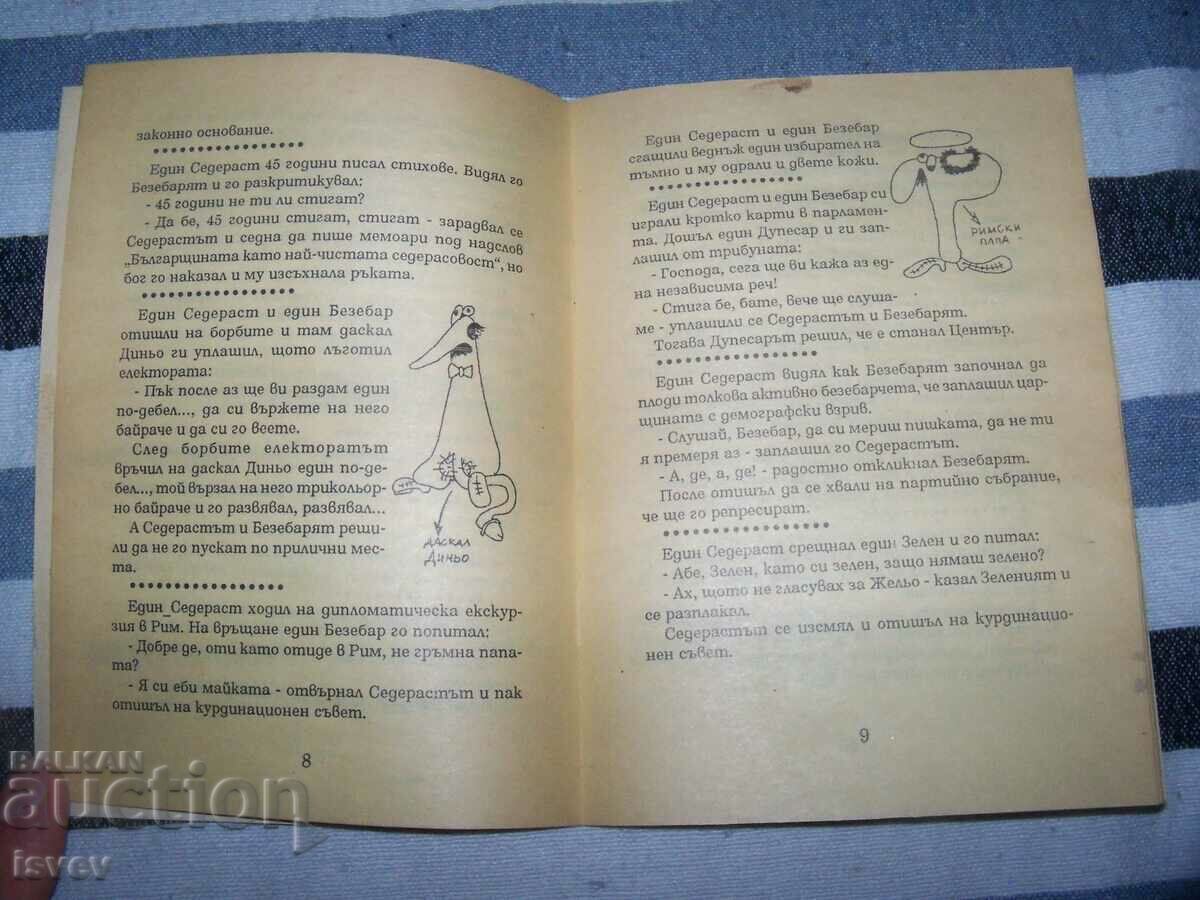 законно основание.
Един Седераст 45 години писал стихове. Видял го
Безебарят и го разкритикувал:
- 45 години не ти ли стигат?
- Да бе, 45 години стигат, стигат - зарадвал се
Седерастът и седна да пише мемоари под надслов
„Българщината като най-чистата седерасовост“, но
бог го наказал и му изсъхнала ръката.
Един Седераст и един Безебар
отишли на борбите и там даскал
Диньо ги уплашил, щото лъготил
електората:
- Пък после аз ще ви раздам един
по-дебел..., да си вържете на него
байраче и да си го веете.
След борбите електоратът
връчил на даскал Диньо един по-де-
бел..., той вързал на него трикольор-
но байраче и го развявал, развявал...
А Седерастът и Безебарят реши-
ли да не го пускат по прилични мес-
та.
ДАСКАЛ
ДИНЬО
Един Седераст ходил на дипломатическа екскур-
зия в Рим. На връщане един Безебар го попитал:
- Добре де, оти като отиде в Рим, не гръмна папа-
та?
- Я си еби майката - отвърнал Седерастът и пак
отишъл на курдинационен съвет.
8
Един Седераст и един Безебар
сгащили веднъж един избирател на
тъмно и му одрали и двете кожи.
Един Седераст и един Безебар си
играли кротко карти в парламен-
та. Дошъл един Дупесар и ги зап-
лашил от трибуната:
- Господа, сега ще ви кажа аз ед-
на независима реч!
- Стига бе, бате, вече ще слуша-
ме - уплашили се Седерастът и Безебарят.
Тогава Дупесарът решил, че е станал Център.
РИМСКИ
ПАПА
Един Седераст видял как Безебарят започнал да
плоди толкова активно безебарчета, че заплашил цар-
щината с демографски взрив.
- Слушай, Безебар, да си мериш пишката, да не ти
я премеря аз - заплашил го Седерастът.
- А, де, а, де! - радостно откликнал Безебарят.
После отишъл да се хвали на партийно събрание,
че ще го репресират.
Един Седераст срещнал един Зелен и го питал:
- Абе, Зелен, като си зелен, защо нямаш зелено?
- Ах, щото не гласувах за Жельо - казал Зеленият и
се разплакал.
Седерастът се изсмял и отишъл на курдинацио-
нен съвет.
9
BALKAN
auction
isvev